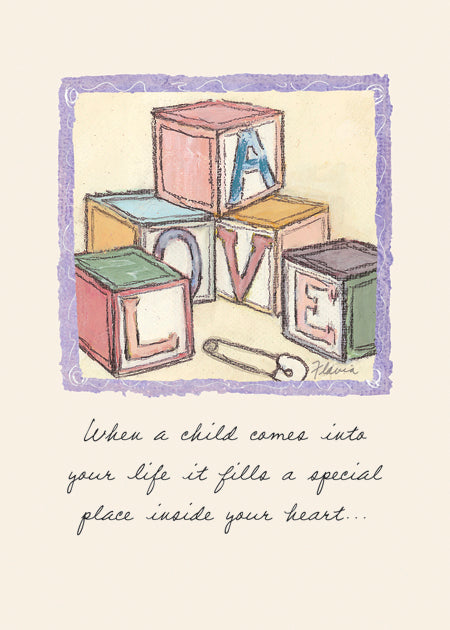 A
L O V E
Flavia
When a child comes into
your life it fills a special
place inside your heart...